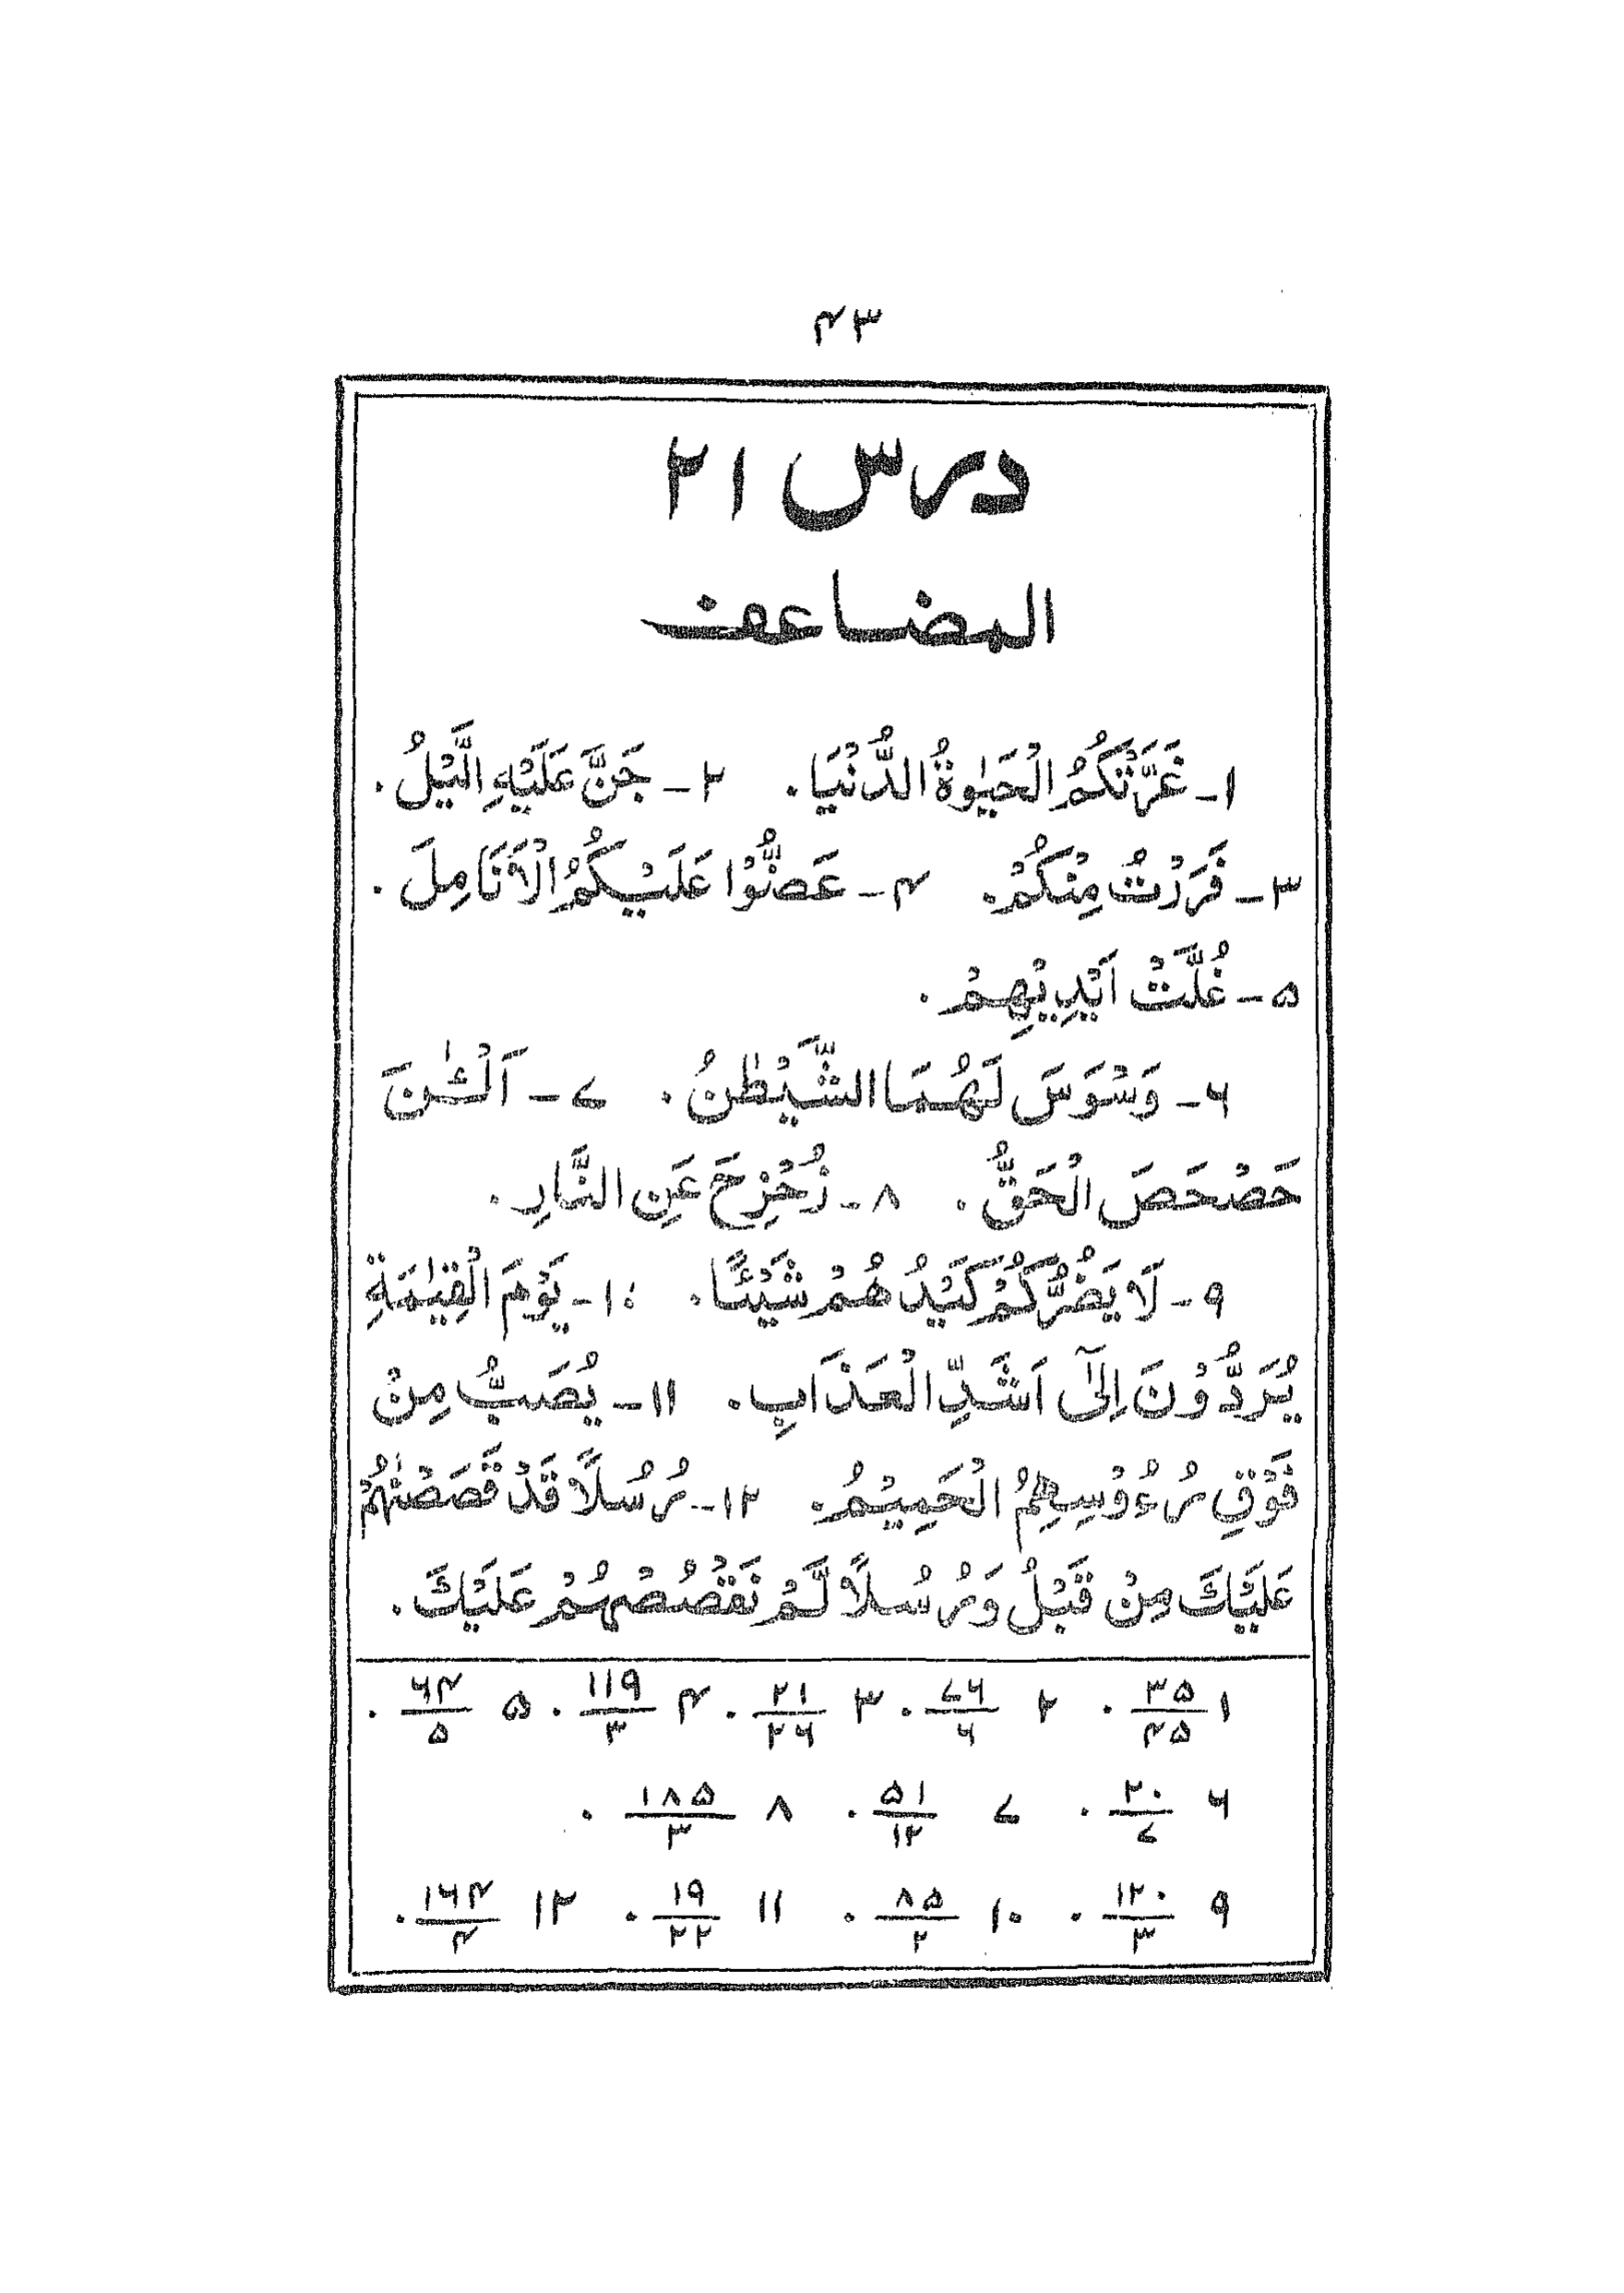 ۴۳
درس ۲۱
المضاعف
۱- غَرَّتْكُمُ الْحَيٰوةُ الدُّنْيَا. ۲- جَنَّ عَلَيْهِ الَّيْلُ.
۳- فَرَرْتُ مِنْكُمْ. ۴- عَضُّوْا عَلَيْكُمُ الْاَنَامِلَ.
۵- غُلَّتْ اَيْدِيْهِمْ.
۶- وَسْوَسَ لَهُمَا الشَّيْطٰنُ. ۷- اَلْـٰٔنَ
حَصْحَصَ الْحَقُّ. ۸- زُحْزِحَ عَنِ النَّارِ.
۹- لَا يَضُرُّكُمْ كَيْدُ هُمْ شَيْئًا. ۱۰- يَوْمَ الْقِيٰمَةِ
يُرَدُّوْنَ اِلٰٓى اَشَدِّ الْعَذَابِ. ۱۱- يُصَبُّ مِنْ
فَوْقِ رُءُوْسِهِمُ الْحَمِيْمُ. ۱۲- رُسُلًا قَدْ قَصَصْنٰهُمْ
عَلَيْكَ مِنْ قَبْلُ وَرُسُلًا لَّمْ نَقْصُصْهُمْ عَلَيْكَ.
۱ ۳۵/۴۵. ۲ ۷۶/۶. ۳ ۲۱/۲۶. ۴ ۱۱۹/۳. ۵ ۶۴/۵.
۶ ۲۰/۷. ۷ ۵۱/۱۲. ۸ ۱۸۵/۳.
۹ ۱۲۰/۳. ۱۰ ۸۵/۲. ۱۱ ۱۹/۲۲. ۱۲ ۱۶۴/۴.